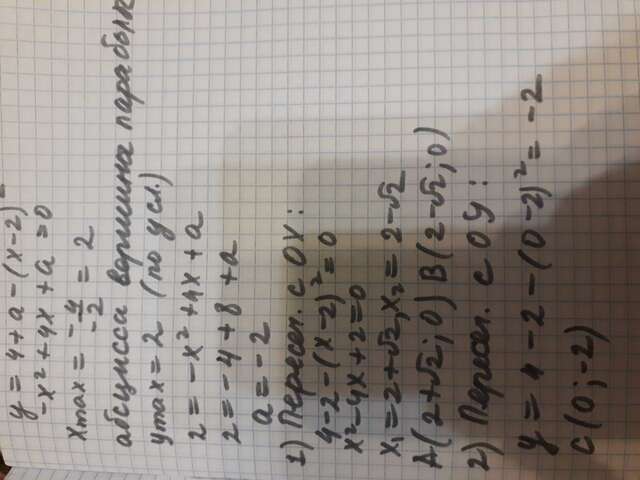 y = 4 + a - (x - 2)²
-x² + 4x + a = 0
xmax = -4/-2 = 2
абсцисса вершина параболы
ymax = 2 (по усл.)
2 = -x² + 4x + a
2 = -4 + 8 + a
a = -2
1) Пересеч. с ОХ:
4-2-(x-2)²=0
x²-4x+2=0
x₁=2+√2, x₂=2-√2
A(2+√2; 0) B(2-√2; 0)
2) Пересеч. с ОУ:
y = 4 - 2 - (0-2)² = -2
C(0; -2)